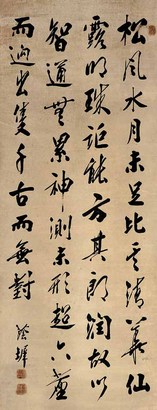 松風水月未足比其清華仙
露明珠詎能方其朗潤故以
智通無累神測未形超六塵
而迥出隻千古而無對